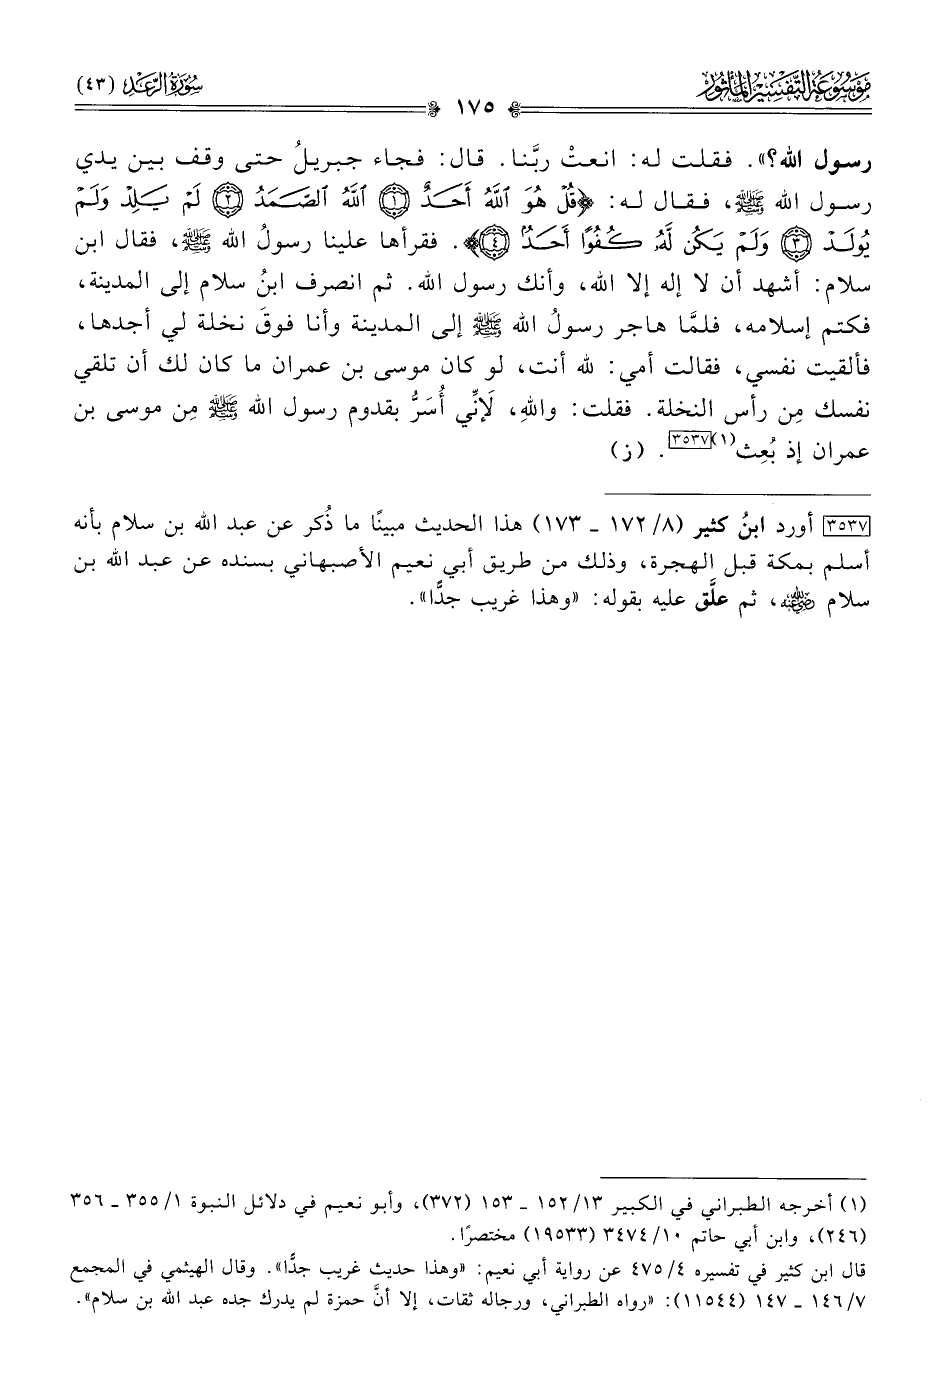 مَوْسُوعَةُ التَّفْسِيرِ المَأْثُورِ
سُورَةُ الرَّعْدِ (٤٣)
١٧٥
رسول الله؟». فقلت له: انعتْ ربَّنا. قال: فجاء جبريلُ حتى وقف بين يدي
رسول الله ﷺ، فقال له: ﴿قُلْ هُوَ ٱللَّهُ أَحَدٌ ۝١ ٱللَّهُ ٱلصَّمَدُ ۝٢ لَمْ يَلِدْ وَلَمْ
يُولَدْ ۝٣ وَلَمْ يَكُن لَّهُۥ كُفُوًا أَحَدٌۢ ۝٤﴾. فقرأها علينا رسولُ الله ﷺ، فقال ابن
سلام: أشهد أن لا إله إلا الله، وأنك رسول الله. ثم انصرف ابنُ سلام إلى المدينة،
فكتم إسلامه، فلمَّا هاجر رسولُ الله ﷺ إلى المدينة وأنا فوقَ نخلة لي أجدها،
فألقيت نفسي، فقالت أمي: لله أنت، لو كان موسى بن عمران ما كان لك أن تلقي
نفسك مِن رأس النخلة. فقلت: واللهِ، لَإنِّي أُسَرُّ بقدوم رسول الله ﷺ مِن موسى بن
عمران إذ بُعِث(١)[٣٥٣٧]. (ز)
[٣٥٣٧] أورد ابنُ كثير (٨/ ١٧٢ ـ ١٧٣) هذا الحديث مبينًا ما ذُكر عن عبد الله بن سلام بأنه
أسلم بمكة قبل الهجرة، وذلك من طريق أبي نعيم الأصبهاني بسنده عن عبد الله بن
سلام رضي الله عنه، ثم علَّق عليه بقوله: «وهذا غريب جدًّا».
(١) أخرجه الطبراني في الكبير ١٣/ ١٥٢ ـ ١٥٣ (٣٧٢)، وأبو نعيم في دلائل النبوة ١/ ٣٥٥ ـ ٣٥٦
(٢٤٦)، وابن أبي حاتم ١٠/ ٣٤٧٤ (١٩٥٣٣) مختصرًا.
قال ابن كثير في تفسيره ٤/ ٤٧٥ عن رواية أبي نعيم: «وهذا حديث غريب جدًّا». وقال الهيثمي في المجمع
٧/ ١٤٦ ـ ١٤٧ (١١٥٤٤): «رواه الطبراني، ورجاله ثقات، إلا أنَّ حمزة لم يدرك جده عبد الله بن سلام».